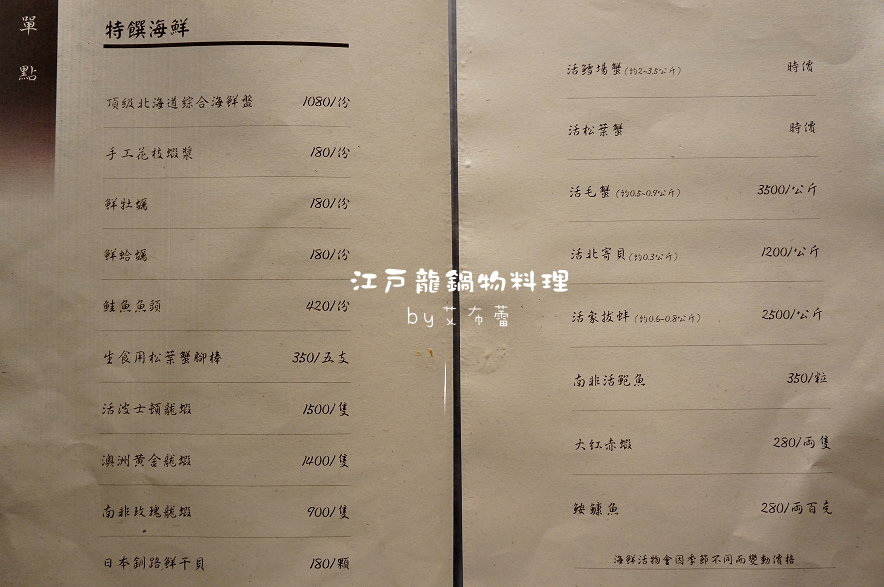 單點
特饌海鮮
頂級北海道綜合海鮮盤 1080/份
手工花枝蝦漿 180/份
鮮牡蠣 180/份
鮮蛤蠣 180/份
鮭魚魚頭 420/份
生食用松葉蟹腳棒 350/五支
活波士頓龍蝦 1500/隻
澳洲黃金龍蝦 1400/隻
南非玫瑰龍蝦 900/隻
日本釧路鮮干貝 180/顆
活鱈場蟹(約2~3.5公斤) 時價
活松葉蟹 時價
活毛蟹(約0.5~0.9公斤) 3500/公斤
活北寄貝(約0.3公斤) 1200/公斤
活象拔蚌(約0.6~0.8公斤) 2500/公斤
南非活鮑魚 350/粒
大紅赤蝦 280/兩隻
鮟鱇魚 280/兩百克
海鮮活物會因季節不同而變動價格
江戶龍鍋物料理
by艾布蕾